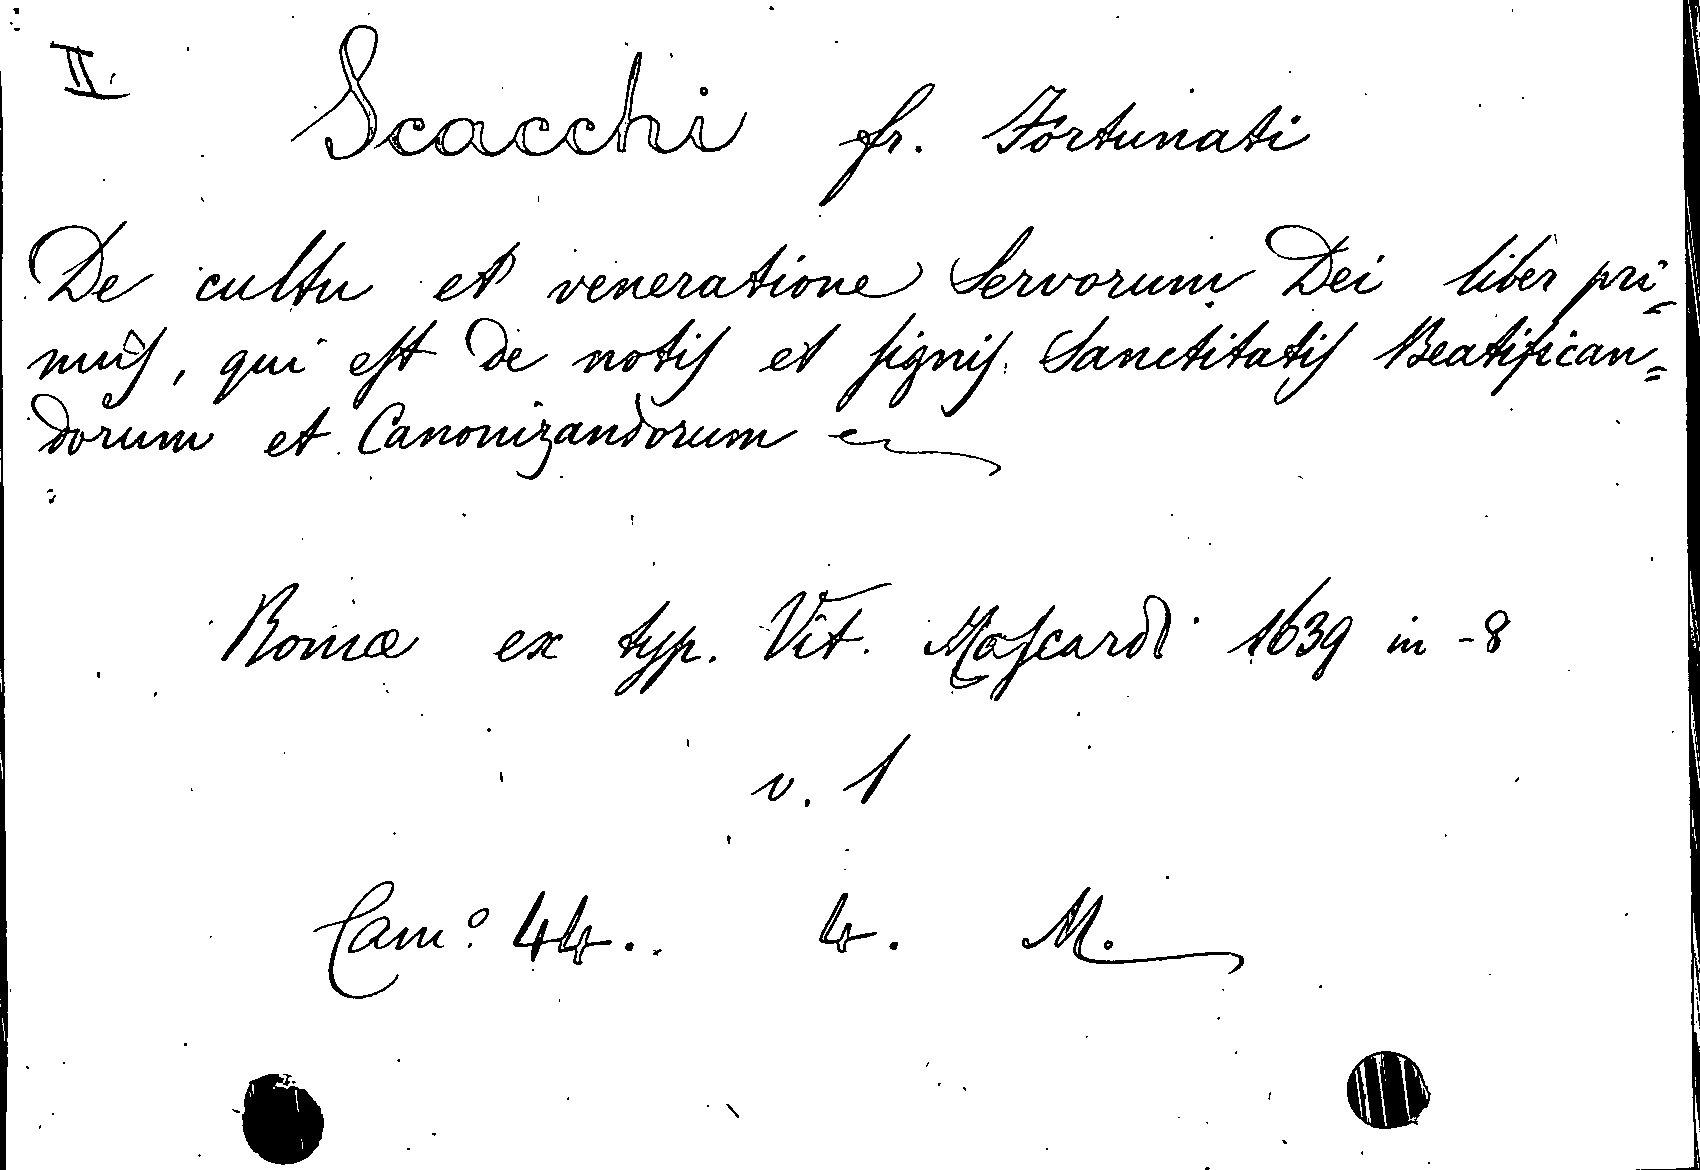 II.
Scacchi fr. Fortunati
De cultu et veneratione Servorum Dei liber pri=
mus, qui est de notis et signis Sanctitatis Beatifican=
dorum et Canonizandorum
Romæ ex typ. Vit. Mascardi 1639 in-8
v. 1
Camº 44. 4. M.